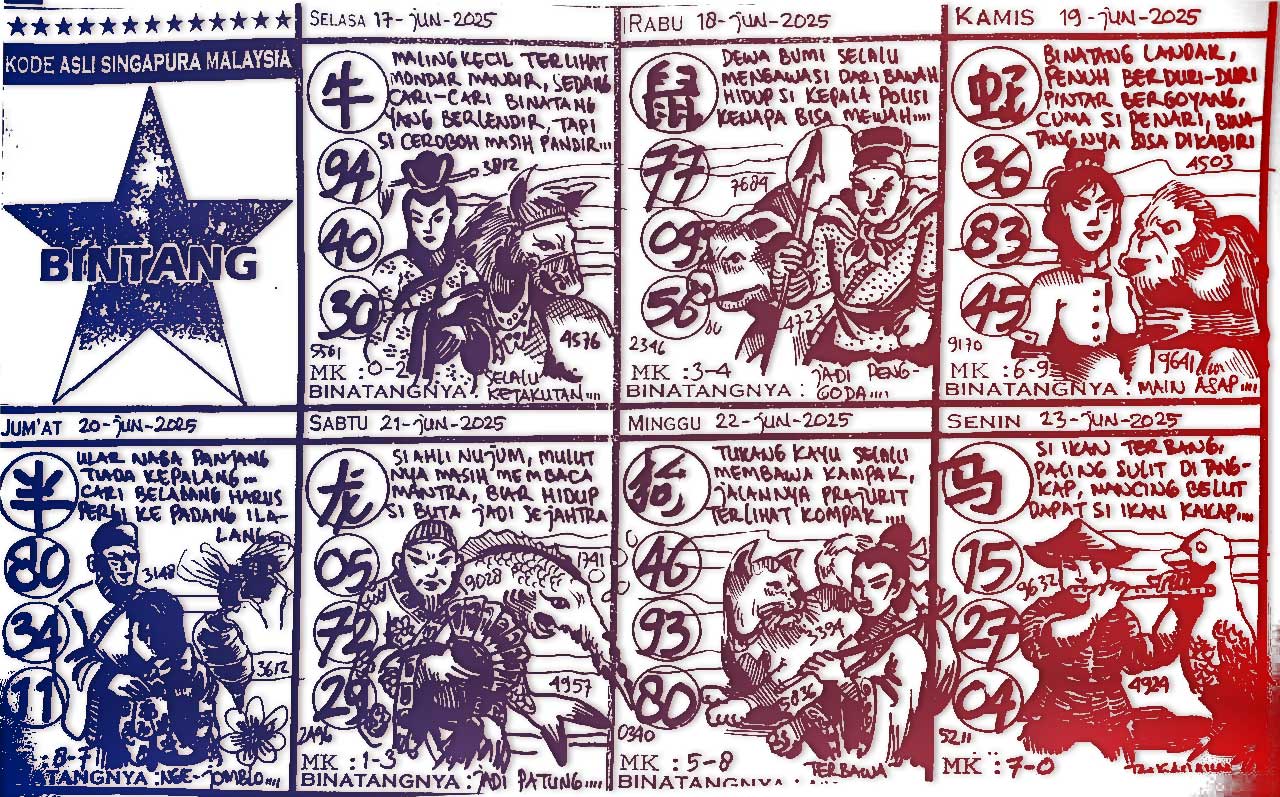 KODE ASLI SINGAPURA MALAYSIA
BINTANG
SELASA 17-JUN-2025
牛
MALING KECIL TERLIHAT
MONDAR MANDIR, SEDANG
CARI-CARI BINATANG
YANG BERLENDIR, TAPI
SI CEROBOH MASIH PANDIR....
94
3812
40
30
4576
5561
MK : 0-2
SELALU
BINATANGNYA : KETAKUTAN....
RABU 18-JUN-2025
鼠
DEWA BUMI SELALU
MENGAWASI DARI BAWAH
HIDUP SI KEPALA POLISI
KENAPA BISA MEWAH....
77
7684
09
56
4723
2346
MK : 3-4
JADI PENG-
BINATANGNYA : GODA....
KAMIS 19-JUN-2025
BINATANG LANDAK,
PENUH BERDURI-DURI
PINTAR BERGOYANG,
CUMA SI PENARI, BINA-
TANGNYA BISA DIKABIRI
4503
36
83
45
9170
9641
MK : 6-9
BINATANGNYA : MAIN ASAP....
JUM'AT 20-JUN-2025
ULAR NAGA PANJANG
TIADA KEPALANG...
CARI BELALANG HARUS
PERGI KE PADANG ILA-
LANG....
80
3148
34
11
3612
: 8-7
ATANGNYA : NGE-JOMBLO....
SABTU 21-JUN-2025
龙
SI AHLI NUJUM, MULUT
NYA MASIH MEMBACA
MANTRA, BIAR HIDUP
SI BUTA JADI SEJAHTRA
05
9028
1741
72
29
4957
2496
MK : 1-3
BINATANGNYA : JADI PATUNG....
MINGGU 22-JUN-2025
TUKANG KAYU SELALU
MEMBAWA KAMPAK,
JALANNYA PRAJURIT
TERLIHAT KOMPAK....
46
93
3394
80
5836
0340
MK : 5-8
TERBAWA
BINATANGNYA :
SENIN 23-JUN-2025
马
SI IKAN TERBANG,
PALING SULIT DI TANG-
KAP, MANCING BELUT
DAPAT SI IKAN KAKAP....
15
9632
27
04
4924
5211
MK : 7-0